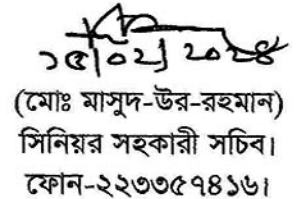 ১৫/০২/২০২৪
(মোঃ মাসুদ-উর-রহমান)
সিনিয়র সহকারী সচিব।
ফোন-২২৩৩৫৭৪১৬।